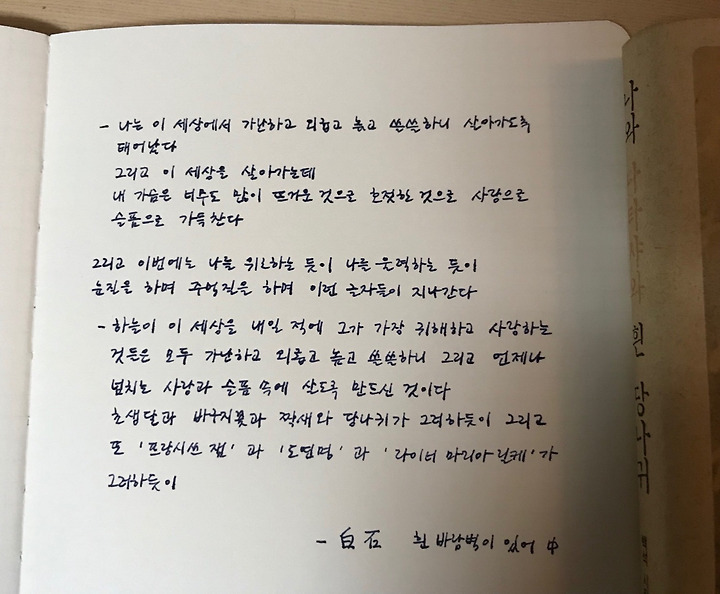 - 나는 이 세상에서 가난하고 외롭고 높고 쓸쓸하니 살아가도록
태어났다
그리고 이 세상을 살아가는데
내 가슴은 너무도 많이 뜨거운 것으로 호젓한 것으로 사랑으로
슬픔으로 가득찬다
그리고 이번에는 나를 위로하는 듯이 나를 울력하는 듯이
눈질을 하며 주먹질을 하며 이런 글자들이 지나간다
- 하늘이 이 세상을 내일 적에 그가 가장 귀해하고 사랑하는
것들은 모두 가난하고 외롭고 높고 쓸쓸하니 그리고 언제나
넘치는 사랑과 슬픔 속에 살도록 만드신 것이다
초생달과 바구지꽃과 짝새와 당나귀가 그러하듯이 그리고
또 '프랑시쓰 쨈'과 '도연명'과 '라이너 마리아 릴케'가
그러하듯이
- 白石 흰 바람벽이 있어 中
나와 나타샤와 흰 당나귀